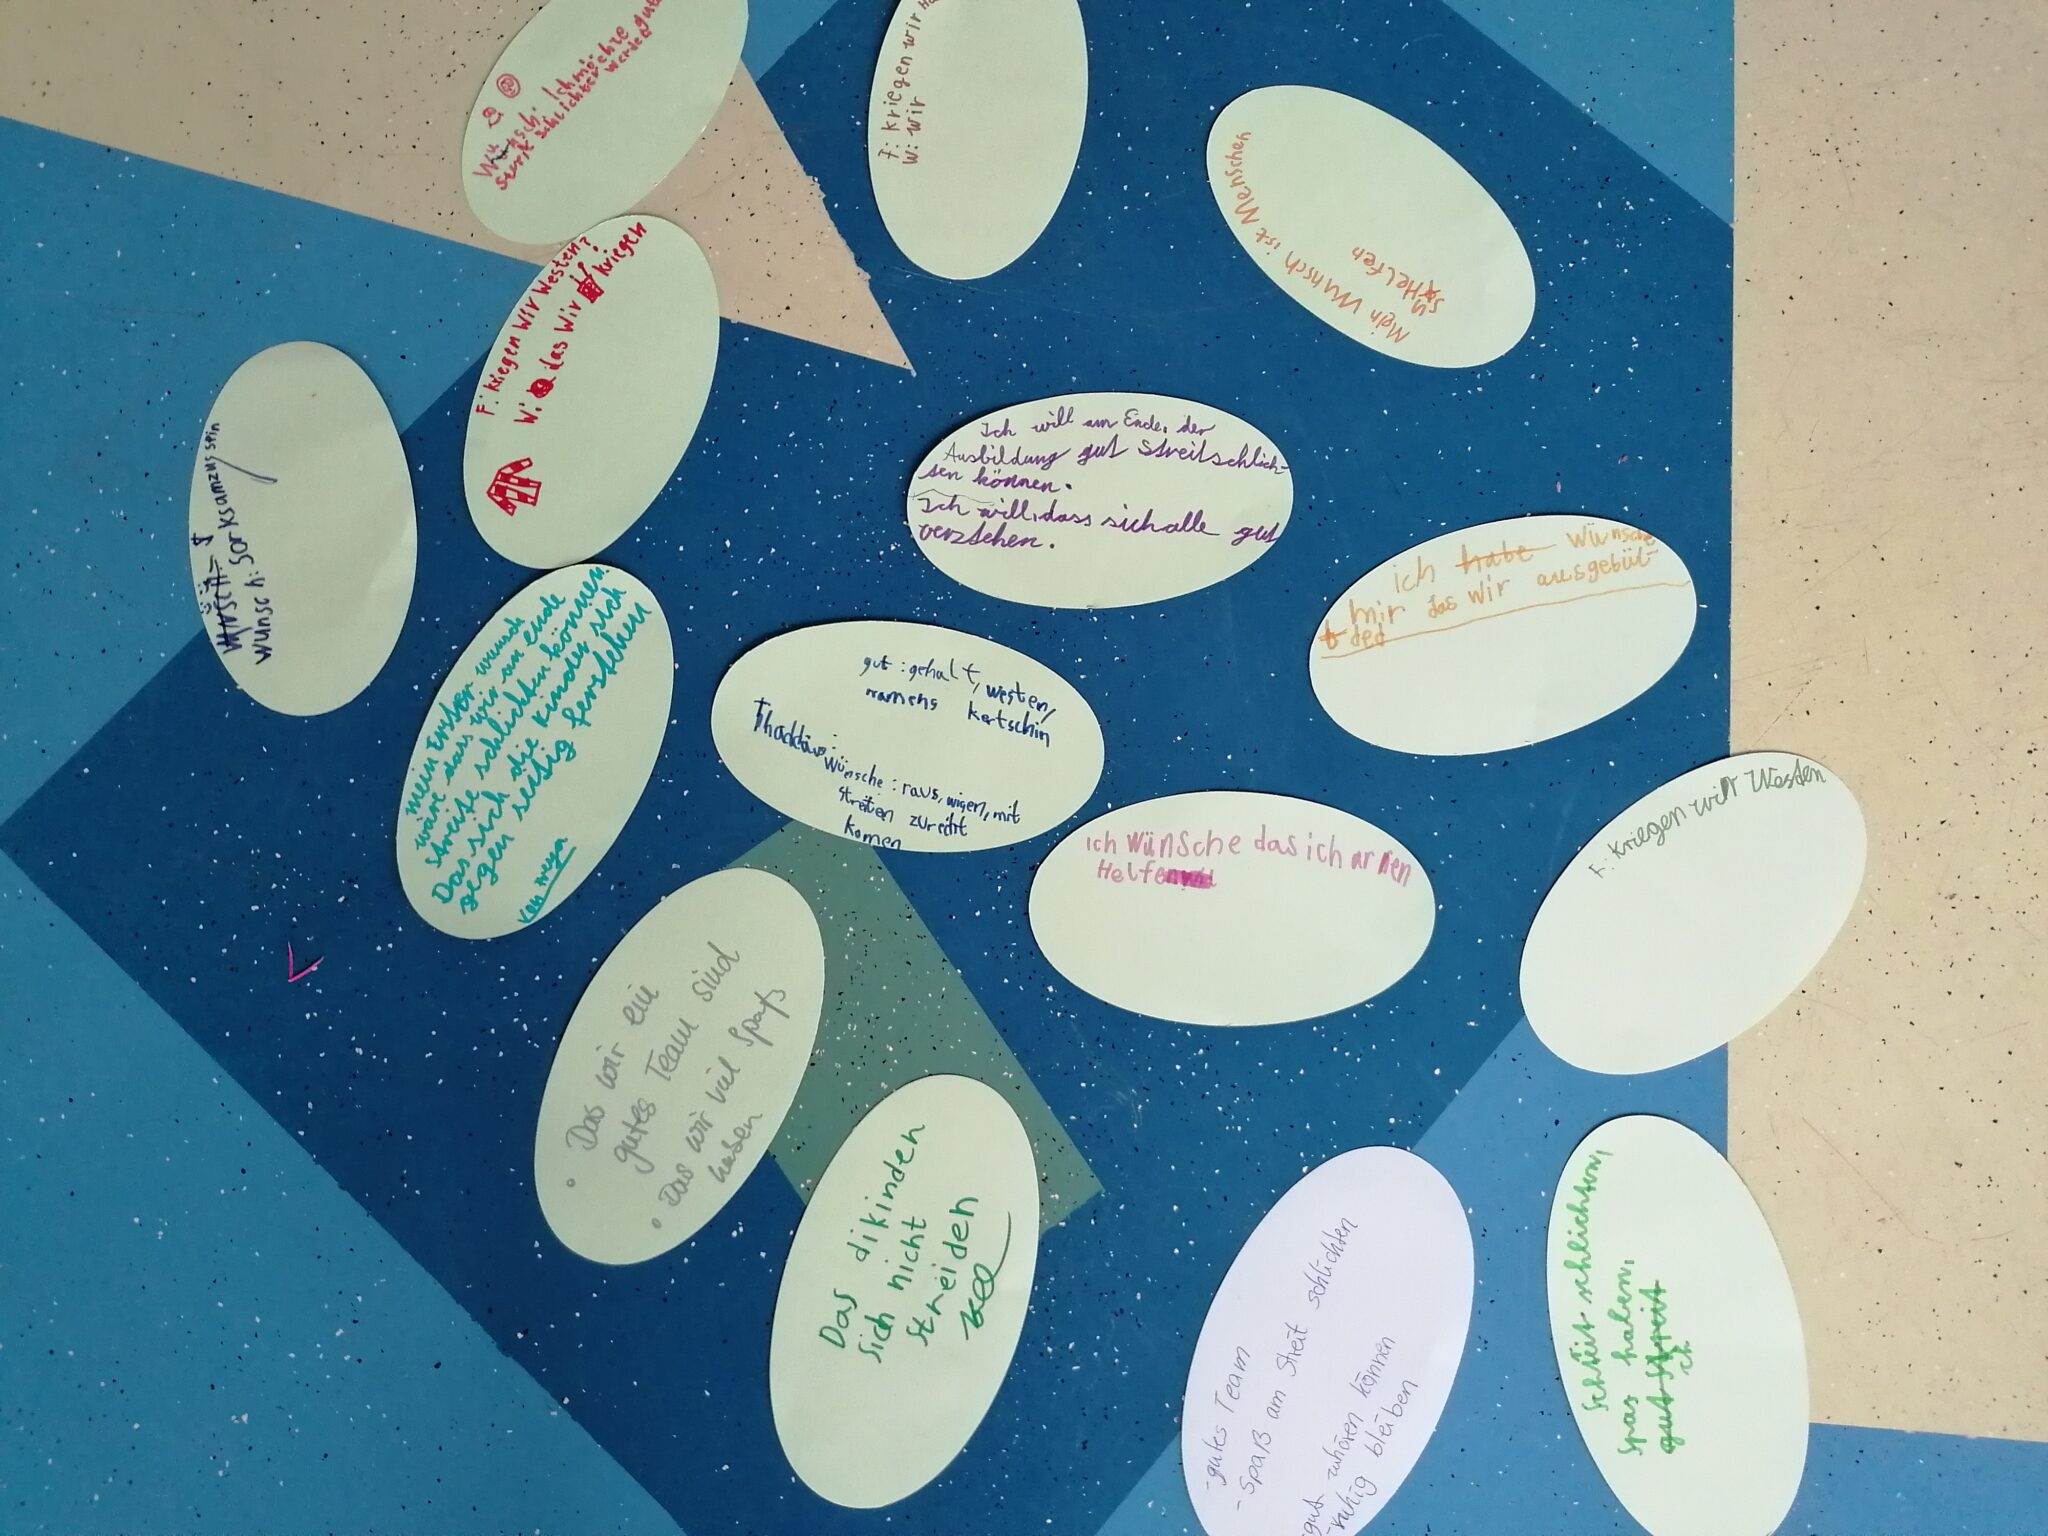 Wunsch: Ich möchte gute
streitschlichter werden
F: kriegen wir
W: wir
Mein Wunsch ist Menschen
Helfen
F: kriegen wir Westen?
das wir kriegen
wunsch: Sorksamzussein
Ich will am Ende, der
Ausbildung gut streitschlich-
ten können.
Ich will, dass sich alle gut
verstehen.
ich habe wünsche
mir das wir ausgebül-
t ded
mein erster wunsch
wäre dass wir am ende
streite schlichten können.
Das sich die kinder sich
gegen seitig ferstehen
gut: gehalt, westen,
namens kertschin
Thaddäus:
Wünsche: raus, wigen, mit
streiten zurecht
komen
ich wünsche das ich ar nen
Helfen
F: Kriegen wir Westen
• Das wir ein
gutes Team sind
• Das wir viel Spaß
haben
Das dikinden
sich nicht
streiden
- gutes Team
- Spaß am Streit schlichten
gut zuhören können
- ruhig bleiben
Schteit schlichten,
Spas haben,
gut Streit
ich